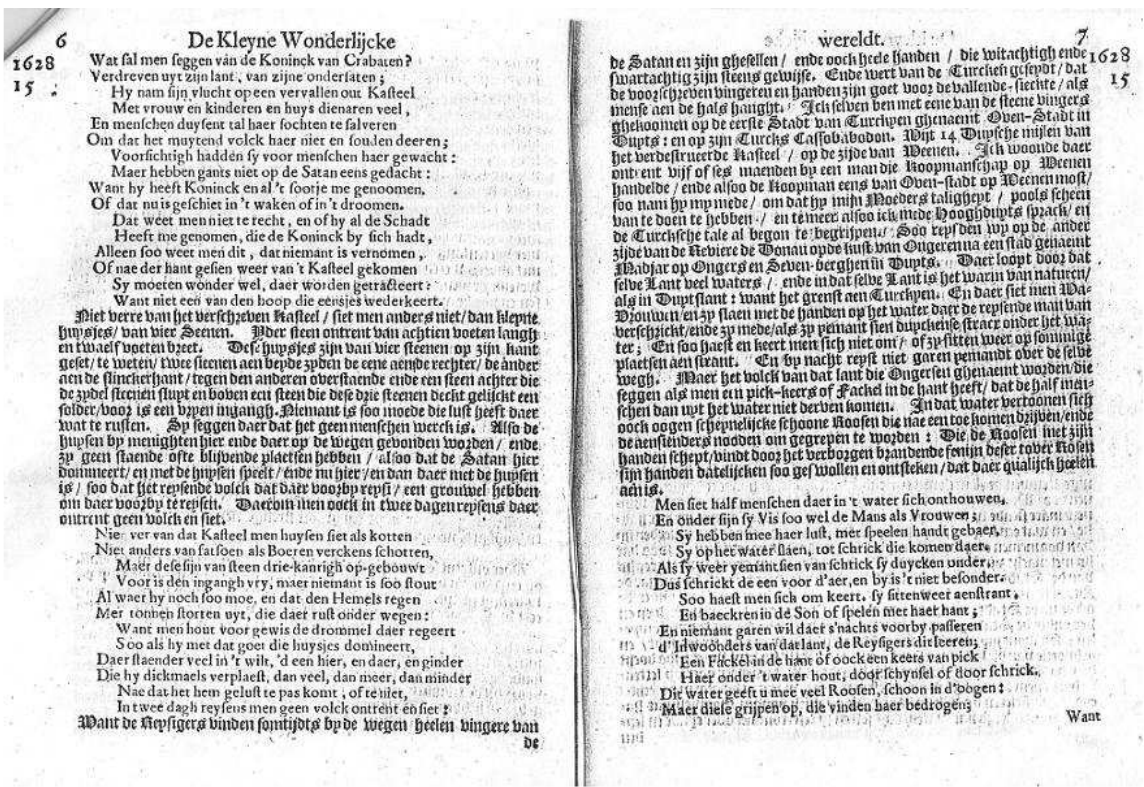 6 De Kleyne Wonderlijcke
1628
15
Wat sal men seggen van de Koninck van Crabaten?
Verdreven uyt zijn lant, van zijne ondersaten;
Hy nam sijn vlucht op een vervallen out Kasteel
Met vrouw en kinderen en huys dienaren veel,
En menschen duysent tal haer sochten te salveren
Om dat het muytend volck haer niet en souden deeren;
Voorsichtigh hadden sy voor menschen haer gewacht:
Maer hebben gants niet op de Satan eens gedacht:
Want hy heeft Koninck en al 't sootje me genoomen,
Of dat nu is geschiet in 't waken of in 't droomen.
Dat weet men niet te recht, en of hy al de Schadt
Heeft me genomen, die de Koninck by sich hadt,
Alleen soo weet men dit, dat niemant is vernomen,
Of nae der hant gesien weer van 't Kasteel gekomen
Sy moeten wonder wel, daer worden getracteert:
Want niet een van den hoop die eensjes wederkeert.
Niet verre van het verschreven Kasteel / siet men anders niet / dan kleyne
huysjes / van vier Steenen. Yder steen ontrent van achtien voeten langh
en twaelf voeten breet. Dese huysjes zijn van vier steenen op zijn kant
geset / te weten / twee steenen aen beyde zyden de eene aen de rechter / de ander
aen de slinckerhant / tegen den anderen overstaende ende een steen achter die
de zydel steenen sluyt en boven een steen die dese drie steenen deckt gelijckt een
solder / voor is een vryen ingangh. Niemant is soo moede die lust heeft daer
wat te rusten. Sy seggen daer dat het geen menschen werck is. Also de
huysen by menighten hier ende daer op de wegen gevonden worden / ende
zy geen staende ofte blijvende plaetsen hebben / alsoo dat de Satan hier
domineert / en met de huysen speelt / ende nu hier / en dan daer met de huysen
is / soo dat het reysende volck dat daer voorby reyst / een grouwel hebben
om daer voorby te reysen. Daerom men oock in twee dagen reysens daer
ontrent geen volck en siet.
Niet ver van dat Kasteel men huysen siet als kotten
Niet anders van fatsoen als Boeren verckens schotten,
Maer dese sijn van steen drie-kantigh op-gebouwt
Voor is den ingangh vry, maer niemant is soo stout
Al waer hy noch soo moe, en dat den Hemels regen
Met tonnen storten uyt, die daer rust onder wegen:
Want men hout voor gewis de drommel daer regeert
Soo als hy met dat goet die huysjes domineert,
Daer staender veel in 't wilt, 'd een hier, en daer, en ginder
Die hy dickmaels verplaest, dan veel, dan meer, dan minder
Nae dat het hem gelust te pas komt, of te niet,
In twee dagh reysens men geen volck ontrent en siet:
Want de Reysigers vinden somtijdts by de wegen heelen vingere van
de
wereldt. 7
1628
15
de Satan en zijn ghesellen / ende oock heele handen / die witachtigh ende
swartachtig zijn steens gewijse. Ende wert van de Turcken geseydt / dat
de voorschreven vingeren en handen zijn goet voor de vallende-sieckte / als
mense aen de hals hanght. Ick selven ben met eene van de steene vingers
ghekoomen op de eerste Stadt van Turckyen ghenaemt Oven-Stadt in
Duyts: en op zijn Turcks Cassobabodon. Wijt 14 Duytsche mijlen van
het verdestrueerde Kasteel / op de zijde van Weenen. Ick woonde daer
ontrent vijf of ses maenden by een man die Koopmanschap op Weenen
handelde / ende alsoo de Koopman eens van Oven-stadt op Weenen most /
soo nam hy my mede / om dat hy mijn Moeders tale gheyt / pools scheen
van te doen te hebben / en te meer alsoo ick mede Hooghduyts sprack / en
de Turcksche tale al begon te begrijpen. Soo reysden wy op de ander
zijde van de Reviere de Donau op de kust van Ongeren na een stad genaemt
Madjar op Ongers en Seven-berghen in Duyts. Daer loopt door dat
selve Lant veel waters / ende in dat selve Lant is het warm van naturen /
als in Duytslant: want het grenst aen Turckyen. En daer siet men Wa-
Vrouwen / en zy slaen met de handen op het water daer de reysende man van
verschrickt / ende zy mede / als zy yemant sien duyckense stracx onder het wa-
ter; En soo haest en keert men sich niet om / of zy sitten weer op sommige
plaetsen aen strant. En by nacht reyst niet garen yemandt over de selve
wegh. Maer het volck van dat lant die Ongersen ghenaemt worden / die
seggen als men een pick-keers of Fackel in de hant heeft / dat de half men-
schen dan uyt het water niet derven komen. In dat water vertoonen sich
oock oogen schijnelijcke schoone Roosen die nae een toe komen drijven / ende
de aensienders nooden om gegrepen te worden: Die de Roosen met zijn
handen schept / vindt door het verborgen brandende fenijn deser tover Rosen
sijn handen datelijcken soo geswollen en ontsteken / dat daer qualijck heelen
aen is.
Men siet half menschen daer in 't water sich onthouwen,
En onder sijn sy Vis soo wel de Mans als Vrouwen;
Sy hebben mee haer lust, met speelen handt gebaer,
Sy op het water slaen, tot schrick die komen daer.
Als sy weer yemant sien van schrick sy duycken onder,
Dus schrickt de een voor d'aer, en by is 't niet besonder.
Soo haest men sich om keert, sy sitten weer aen strant,
En baeckren in de Son of spelen met haer hant;
En niemant garen wil daer s'nachts voorby passeren
d' Inwoonders van dat lant, de Reysigers dit leeren;
Een Fackel in de hant of oock een keers van pick
Haer onder 't water hout, door schynsel of door schrick.
Dit water geeft u mee veel Roosen, schoon in d'oogen:
Maer diese grijpen op, die vinden haer bedrogen;
Want